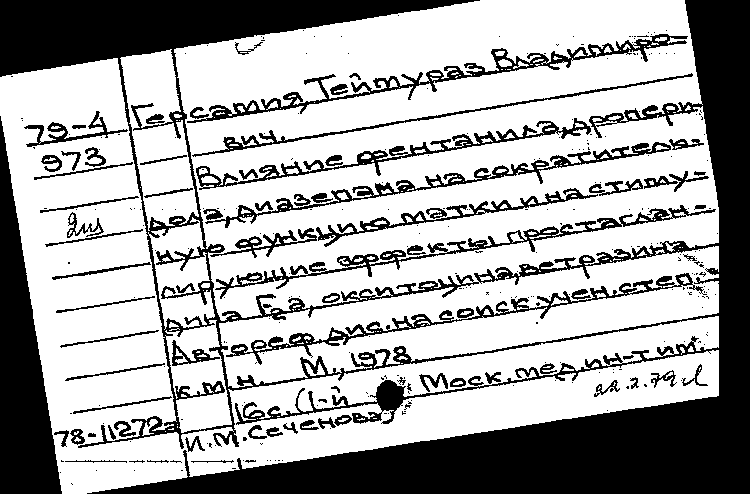 79-4 Герсамия, Теймураз Владимиро-
973 вич.
Влияние фентанила, дропери-
дола, диазепама на сократитель-
ную функцию матки и на стиму-
лирующие эффекты простаглан-
дина F₂a, окситоцина, ветразина.
Автореф. дис. на соиск. учен. степ.
к.м.н. М., 1978.
16с. (1-й Моск. мед. ин-т им.
78-11272а И.М. Сеченова)
22.2.79